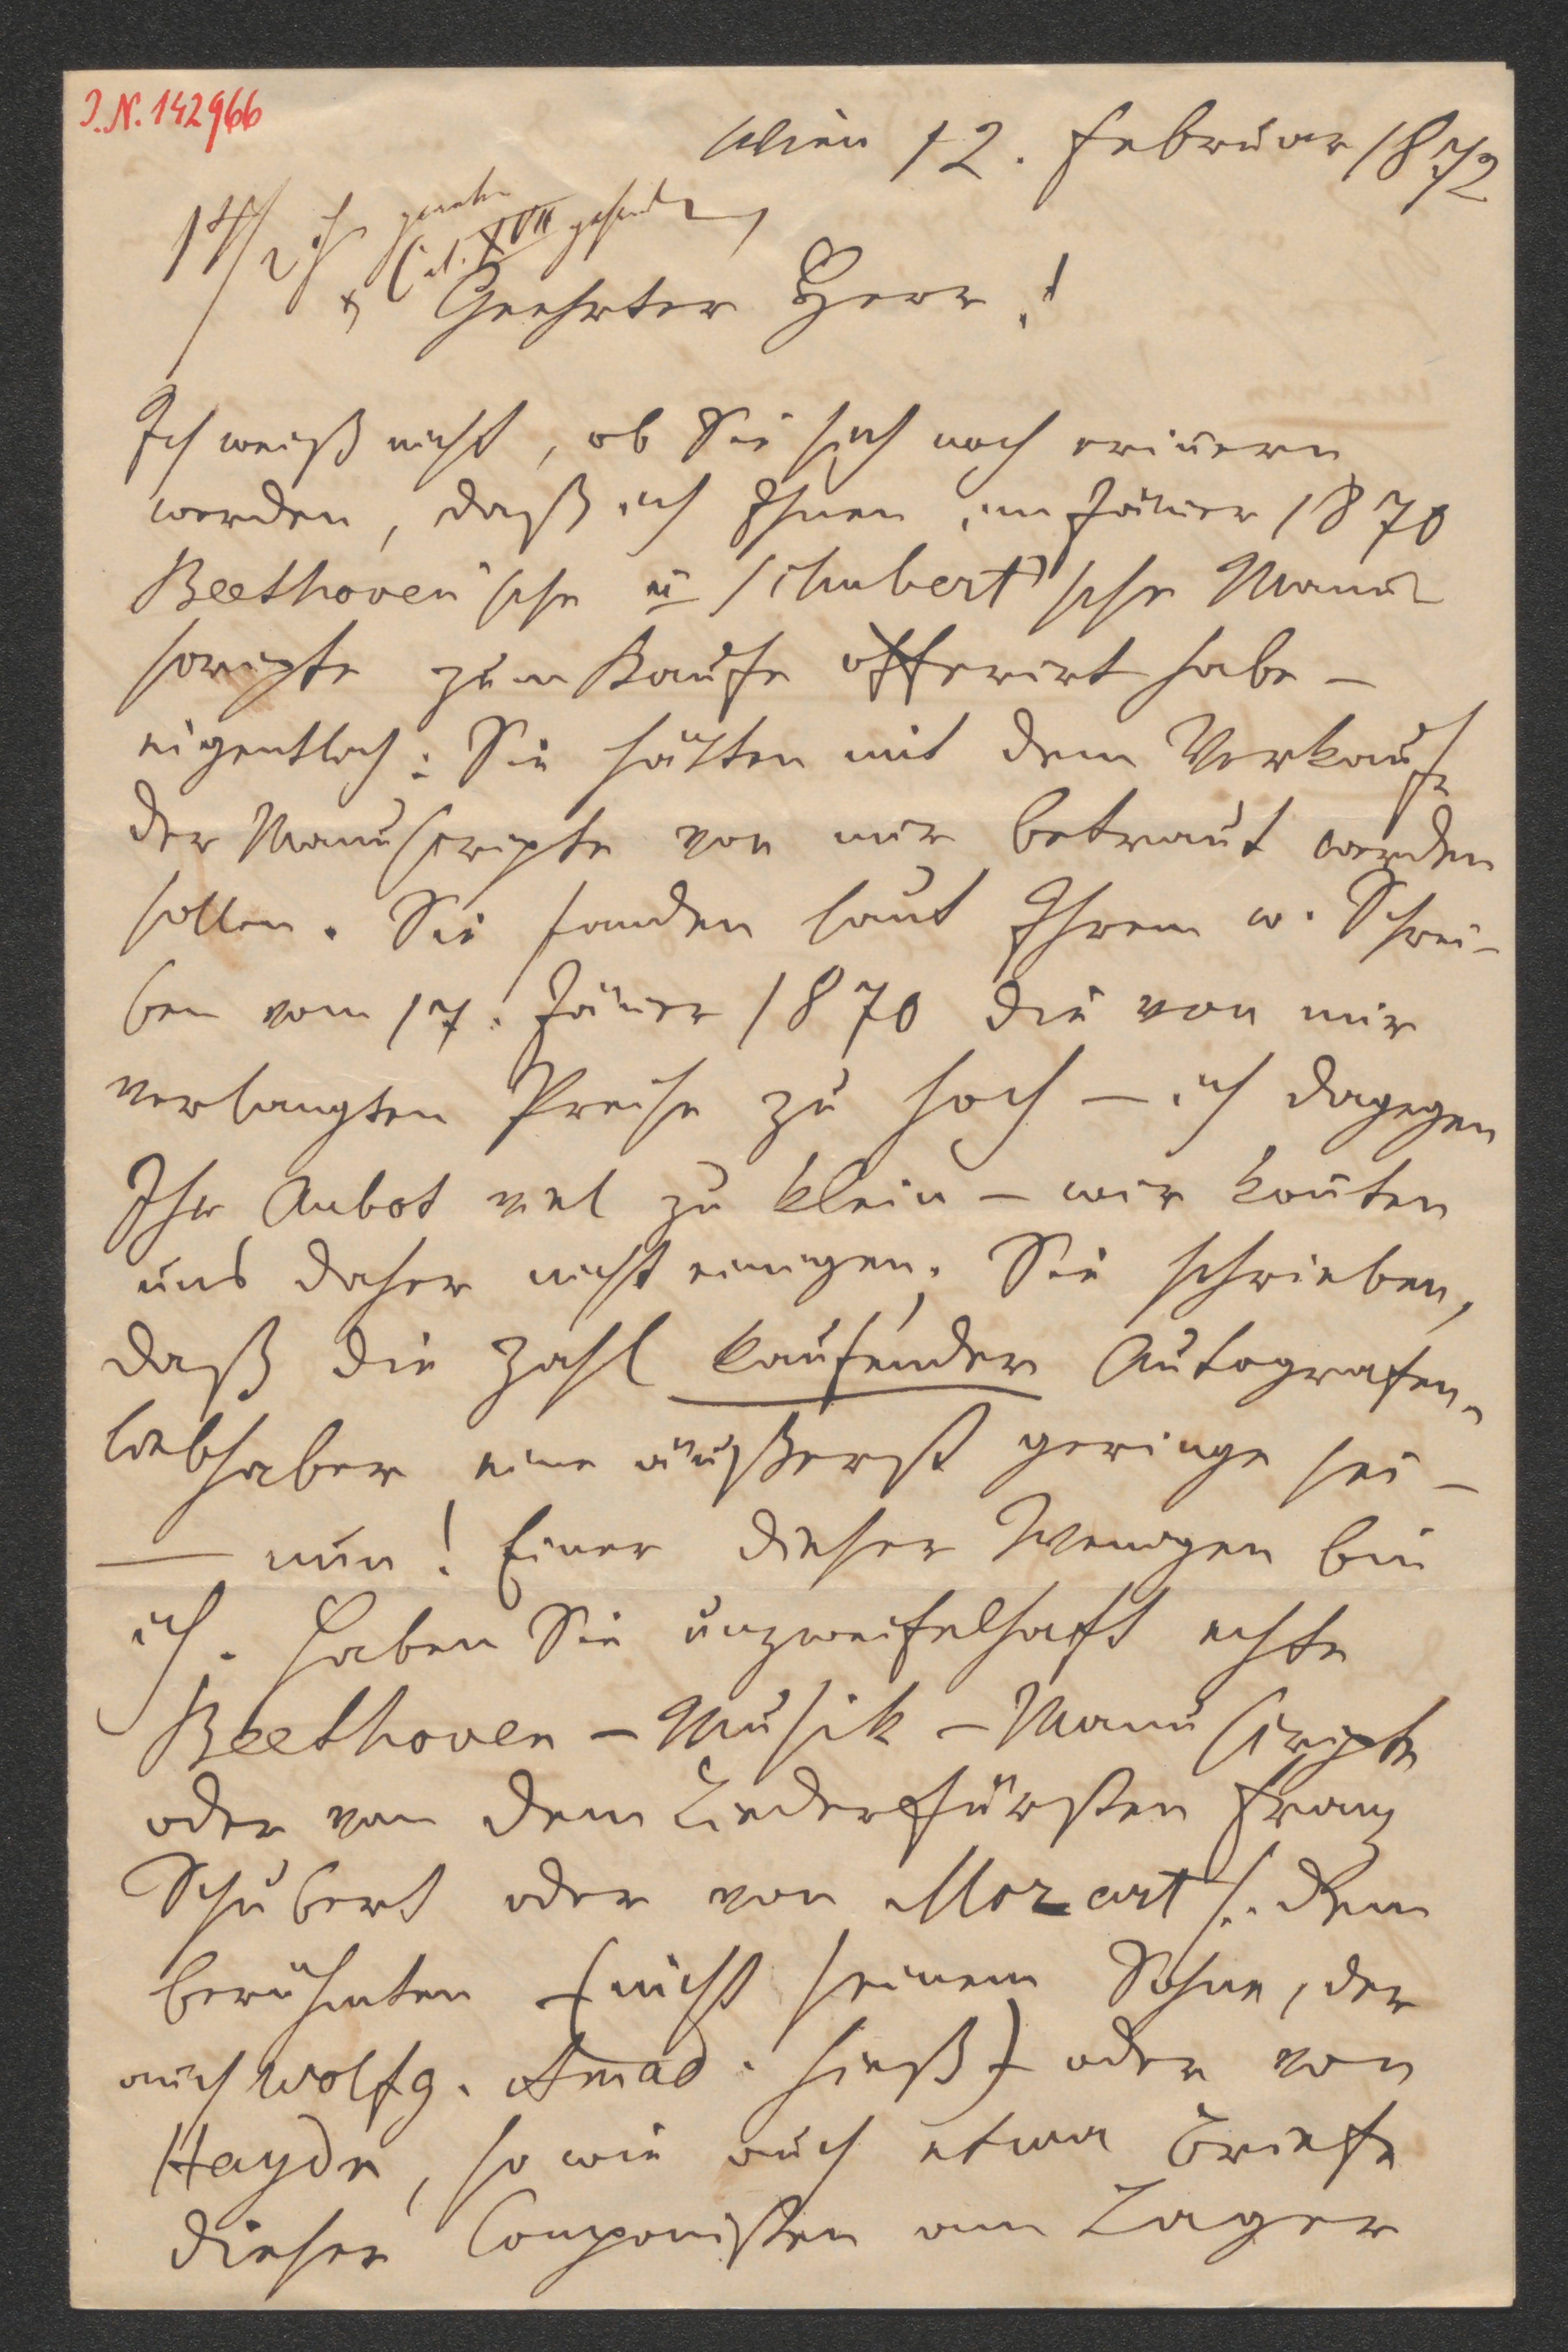 I.N. 142966
Wien 12. Februar 1872
14/2
Cat. XVII gesendet
Geehrter Herr!
Ich weiß nicht, ob Sie sich noch erin̄ern
werden, daß ich Ihnen im Jän̄er 1870
Beethoven'sche u Schubert'sche Manu-
scripte zum Kaufe offerirt habe –
eigentlich: Sie hätten mit dem Verkaufe
der Manuscripte von mir betraut werden
sollen. Sie fanden laut Ihrem w. Schrei-
ben vom 17. Jän̄er 1870 die von mir
verlangten Preise zu hoch – ich dagegen
Ihr Anbot viel zu klein – wir kon̄ten
uns daher nicht einigen. Sie schrieben,
daß die Zahl kaufender Autografen-
liebhaber eine äußerst geringe sei –
– nun! Einer dieser Wenigen bin
ich. Haben Sie unzweifelhaft echte
Beethoven – Musik – Manuscripte
oder von dem Liederfürsten Franz
Schubert oder von Mozart /: dem
berühmten (nicht seinem Sohne, der
auch Wolfg. Amad. hieß) oder von
Haydn, so wie auch etwa Briefe
dieser Componisten am Lager